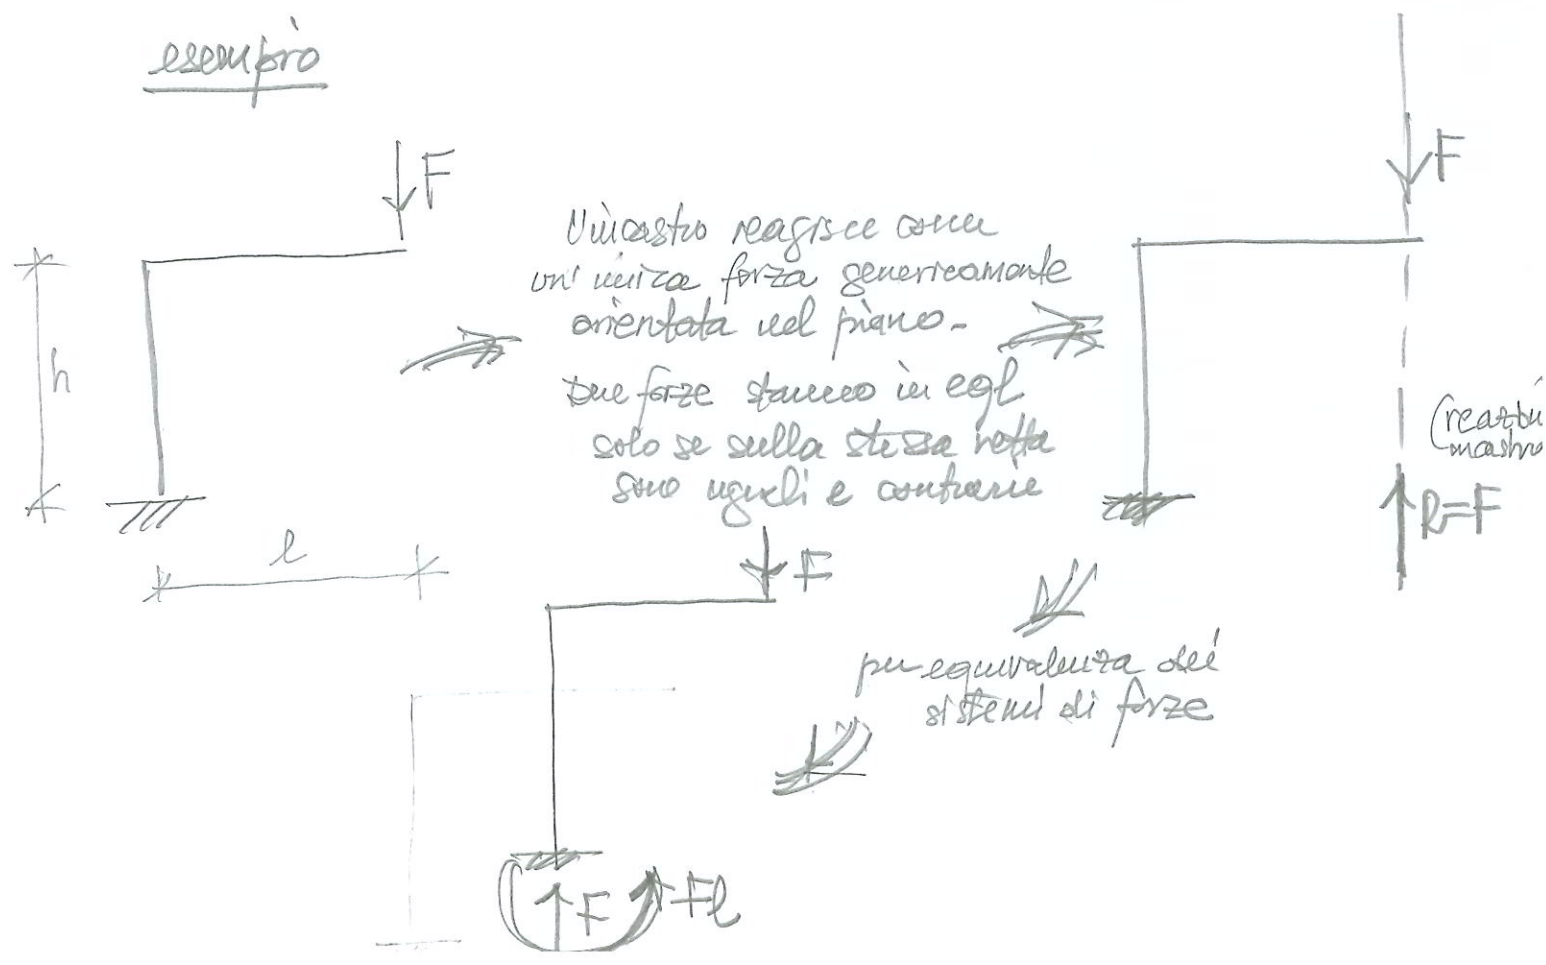 esempio
F
h
l
L'incastro reagisce come
un'unica forza genericamente
orientata nel piano.
Due forze stanno in eql
solo se sulla stessa retta
sono uguali e contrarie
F
(reazbu
R=F
per equivalenza dei
sistemi di forze
F
F
Fl